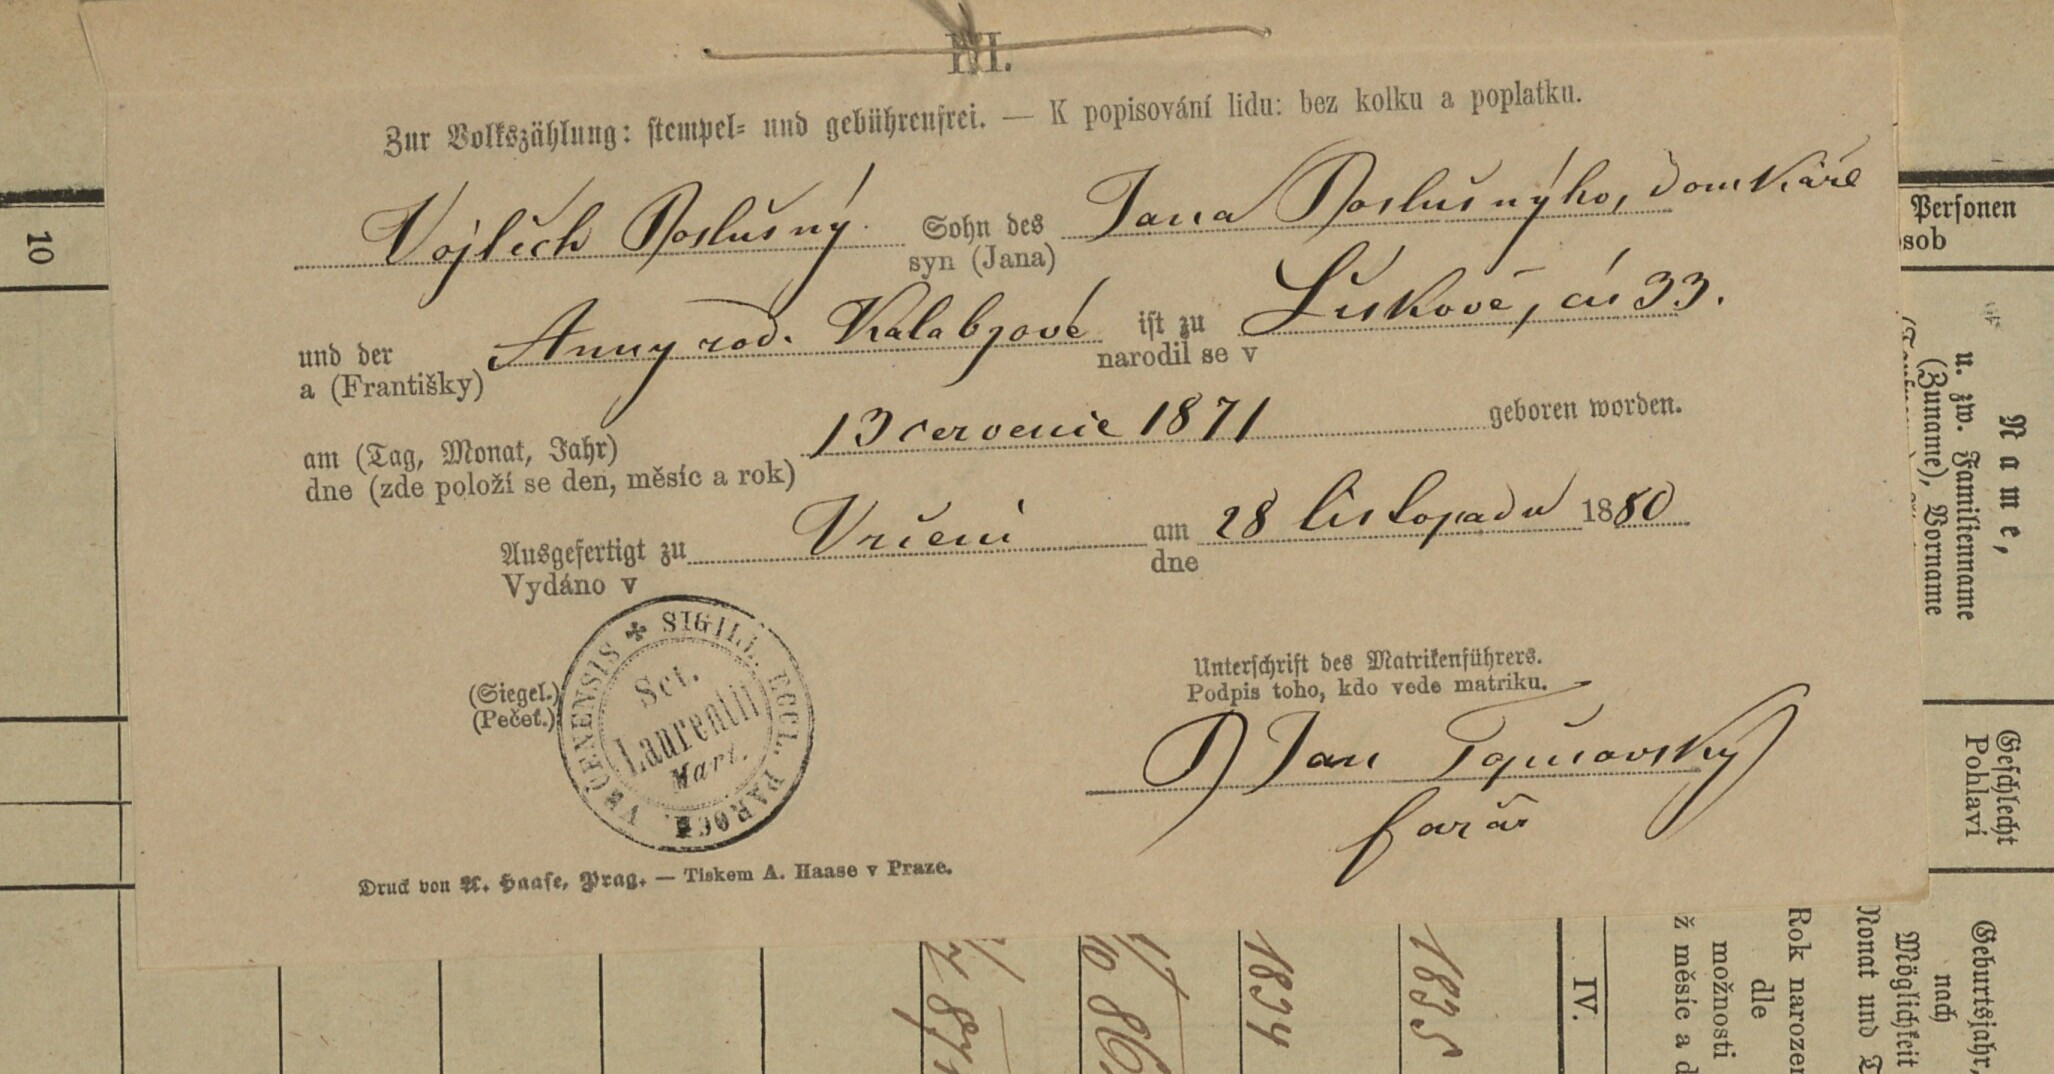 III.
Zur Volkszählung: stempel= und gebührenfrei. — K popisování lidu: bez kolku a poplatku.
Vojtěch Poslušný Sohn des Jana Poslušnýho, domkáře
syn (Jana)
und der Anny rod. Kalabzové ist zu Liškově, čís 33.
a (Františky) narodil se v
am (Tag, Monat, Jahr) 13 červenie 1871 geboren worden.
dne (zde položí se den, měsíc a rok)
Ausgefertigt zu Vrčeni am 28 listopadu 1880
Vydáno v dne
(Siegel.)
(Pečeť.)
✠ SIGILL. ECCL. PAROCH. VRČENENSIS
Sct.
Laurentii
Mart.
Unterschrift des Matrikenführers.
Podpis toho, kdo vede matriku.
P Jan
farář
Druck von A. Haase, Prag. — Tiskem A. Haase v Praze.
10
Personen
osob
Name,
u. zw. Familienname
(Zuname), Vorname
Geschlecht
Pohlavi
Geburtsjahr,
nach
Möglichkeit
Monat und T
Rok narozen
dle
možnosti
ž měsíc a d
IV.
1835
1834